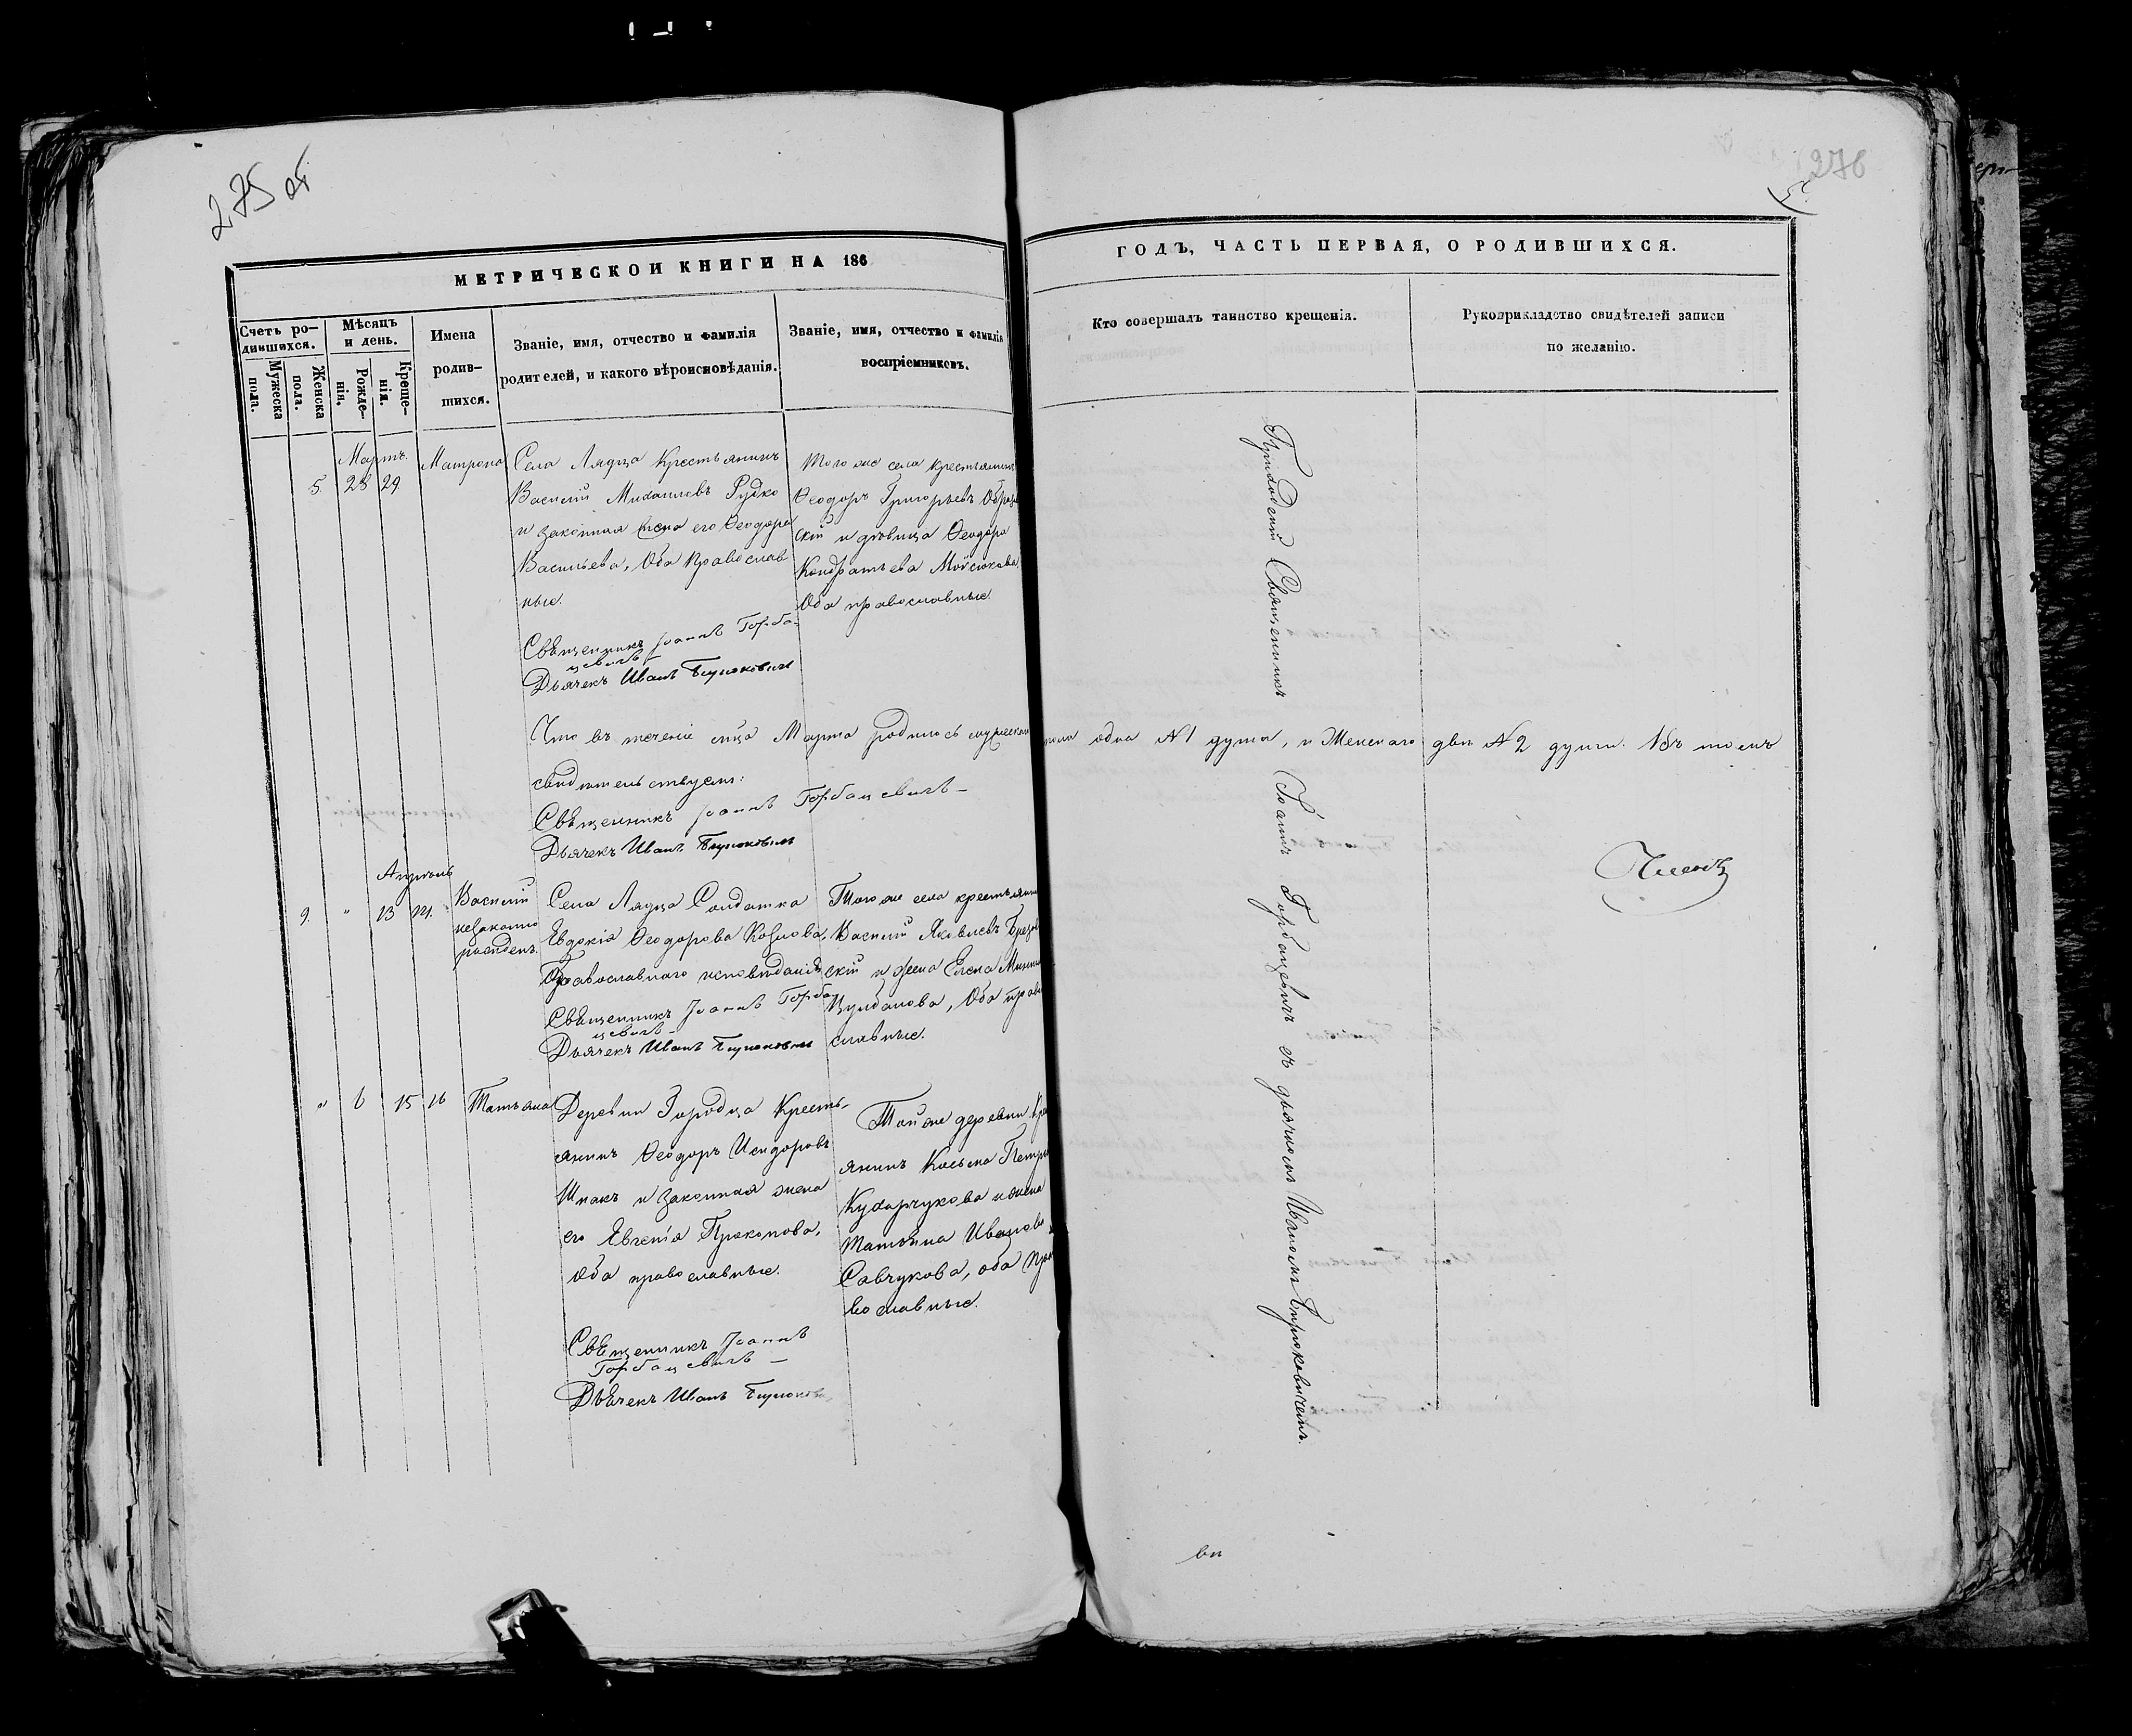 275 об
276
МЕТРИЧЕСКОЙ КНИГИ НА 186
ГОДЪ, ЧАСТЬ ПЕРВАЯ, О РОДИВШИХСЯ.
Счетъ ро-
дившихся.
Мужеска
пола.
Женска
пола.
Мѣсяцъ
и день.
Рожде-
нія.
Креще-
нія.
Имена
родив-
шихся.
Званіе, имя, отчество и фамилія
родителей, и какого вѣроисповѣданія.
Званіе, имя, отчество и фамилія
воспріемниковъ.
Кто совершалъ таинство крещенія.
Рукоприкладство свидѣтелей записи
по желанію.
Мартъ.
5. 28 29 Матрона
Села Лядца Крестьянинъ
Василій Михаилевъ Рудко
и законная жена его Ѳеодора
Васильева, Оба православ
ные.
Священникъ Іоаннъ Горба-
цевичъ
Дьячекъ Иванъ Бирюковичъ
Того же села крестьянинъ
Ѳеодоръ Григорьевъ
скій и дѣвица Ѳеодора
Кондратьева
Оба православные.
Что въ теченіе мца Марта родилось мужеска пола одна №1 душа, и Женскаго двѣ №2 души. Въ томъ
свидѣтельствуемъ:
Священникъ Іоаннъ Горбацевичъ
Дьячекъ Иванъ Бирюковичъ
Апрѣль
9. " 13 14. Василій
незаконно
рожденъ.
Села Лядца Солдатка
Евдокія Ѳеодорова Козлова,
Православнаго исповѣданія
Священникъ Іоаннъ Горба
цевичъ
Дьячекъ Иванъ Бирюковичъ
Того же села крестьянинъ
Василій Яковлевъ
скій и жена Елена
Оба право
славные.
" 6 15 16 Татьяна
Деревни Городца Кресть-
янинъ Ѳеодоръ Исидоровъ
Шпакъ и законная жена
его Евгенія Прокопова,
Оба православные.
Священникъ Іоаннъ
Горбацевичъ
Дьячекъ Иванъ Бирюкович
Той же деревни Кре
янинъ Косьма Петро
Кухарчукова и жена
Татьяна Иванова
Савчукова, оба пра
вославные.
Приходскій Священникъ Іоаннъ Горбацевичъ съ дьячкомъ Иваномъ Бирюковичемъ.